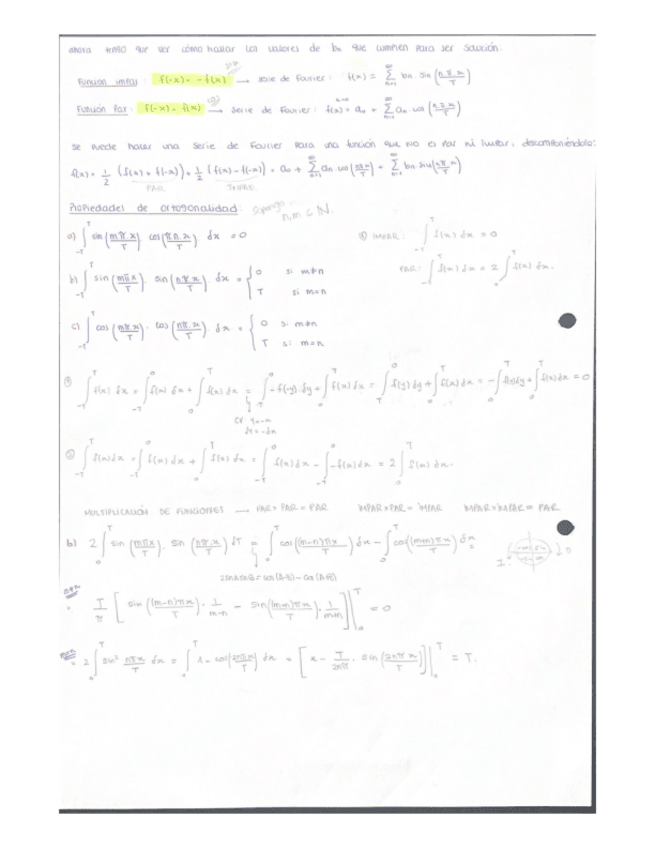 ahora tengo que ver cómo hallar los valores de bn que cumplen para ser solución:
Función impar: f(-x) = -f(x) → serie de Fourier: f(x) = ∑_{n=1}^{∞} bn · sin(nπx/T)
Función Par: f(-x) = f(x) → serie de Fourier: f(x) = a₀ + ∑_{n=1}^{∞} an · cos(nπx/T)
se puede hacer una serie de Fourier para una función que no es par ni impar, descomponiéndola:
f(x) = 1/2 (f(x) + f(-x)) + 1/2 (f(x) - f(-x)) = a₀ + ∑_{n=1}^{∞} an cos(nπx/T) + ∑_{n=1}^{∞} bn · sin(nπx/T)
PAR IMPAR
Propiedades de ortogonalidad: supongo n,m ∈ N.
a) ∫_{-T}^{T} sin(mπx/T) cos(πnx/T) dx = 0
① IMPAR: ∫_{-T}^{T} f(x) dx = 0
PAR: ∫_{-T}^{T} f(x) dx = 2 ∫_{0}^{T} f(x) dx.
b) ∫_{-T}^{T} sin(mπx/T) · sin(nπx/T) dx = { 0 si m≠n
T si m=n
c) ∫_{-T}^{T} cos(mπx/T) · cos(nπx/T) · dx = { 0 si m≠n
T si m=n
① ∫_{-T}^{T} f(x) dx = ∫_{-T}^{0} f(x) dx + ∫_{0}^{T} f(x) dx = ∫_{T}^{0} -f(-y) dy + ∫_{0}^{T} f(x) dx = ∫_{T}^{0} f(y) dy + ∫_{0}^{T} f(x) dx = -∫_{0}^{T} f(y) dy + ∫_{0}^{T} f(x) dx = 0
CV: y=-x
dy=-dx
② ∫_{-T}^{T} f(x) dx = ∫_{-T}^{0} f(x) dx + ∫_{0}^{T} f(x) dx = ∫_{0}^{T} f(x) dx - ∫ -f(x) dx = 2 ∫_{0}^{T} f(x) dx.
MULTIPLICACIÓN DE FUNCIONES → PAR × PAR = PAR IMPAR × PAR = IMPAR IMPAR × IMPAR = PAR
b) 2 ∫_{0}^{T} sin(mπx/T) · sin(nπx/T) dT = ∫_{0}^{T} cos((m-n)πx/T) dx - ∫_{0}^{T} cos((m+n)πx/T) dx =
2sinAsinB = cos(A-B) - cos(A+B)
m≠n
· T/π [ sin((m-n)πx/T) · 1/m-n - sin((m+n)πx/T) · 1/m+n ] |_{0}^{T} = 0
m=n
= 2 ∫_{0}^{T} sin² nπx/T dx = ∫_{0}^{T} 1 - cos(2nπx/T) dx = [ x - T/2nπ · sin(2nπx/T) ] |_{0}^{T} = T.